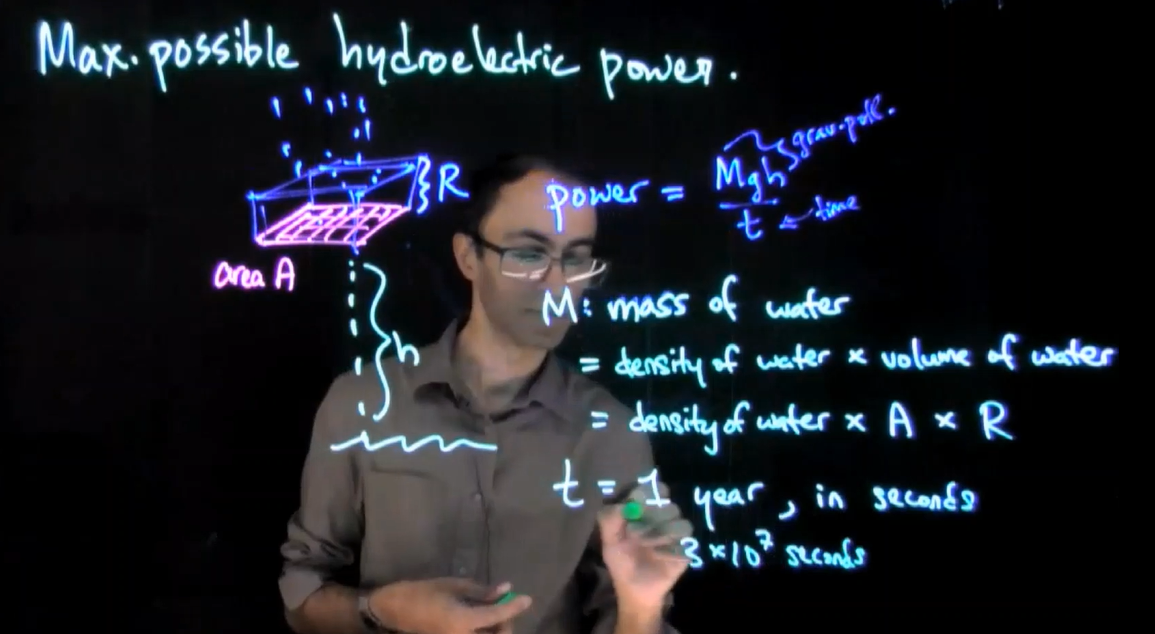 Max. possible hydroelectric power.
R
area A
h
power = Mgh / t
grav. pot.
time
M: mass of water
= density of water × volume of water
= density of water × A × R
t = 1 year, in seconds
3 × 10⁷ seconds